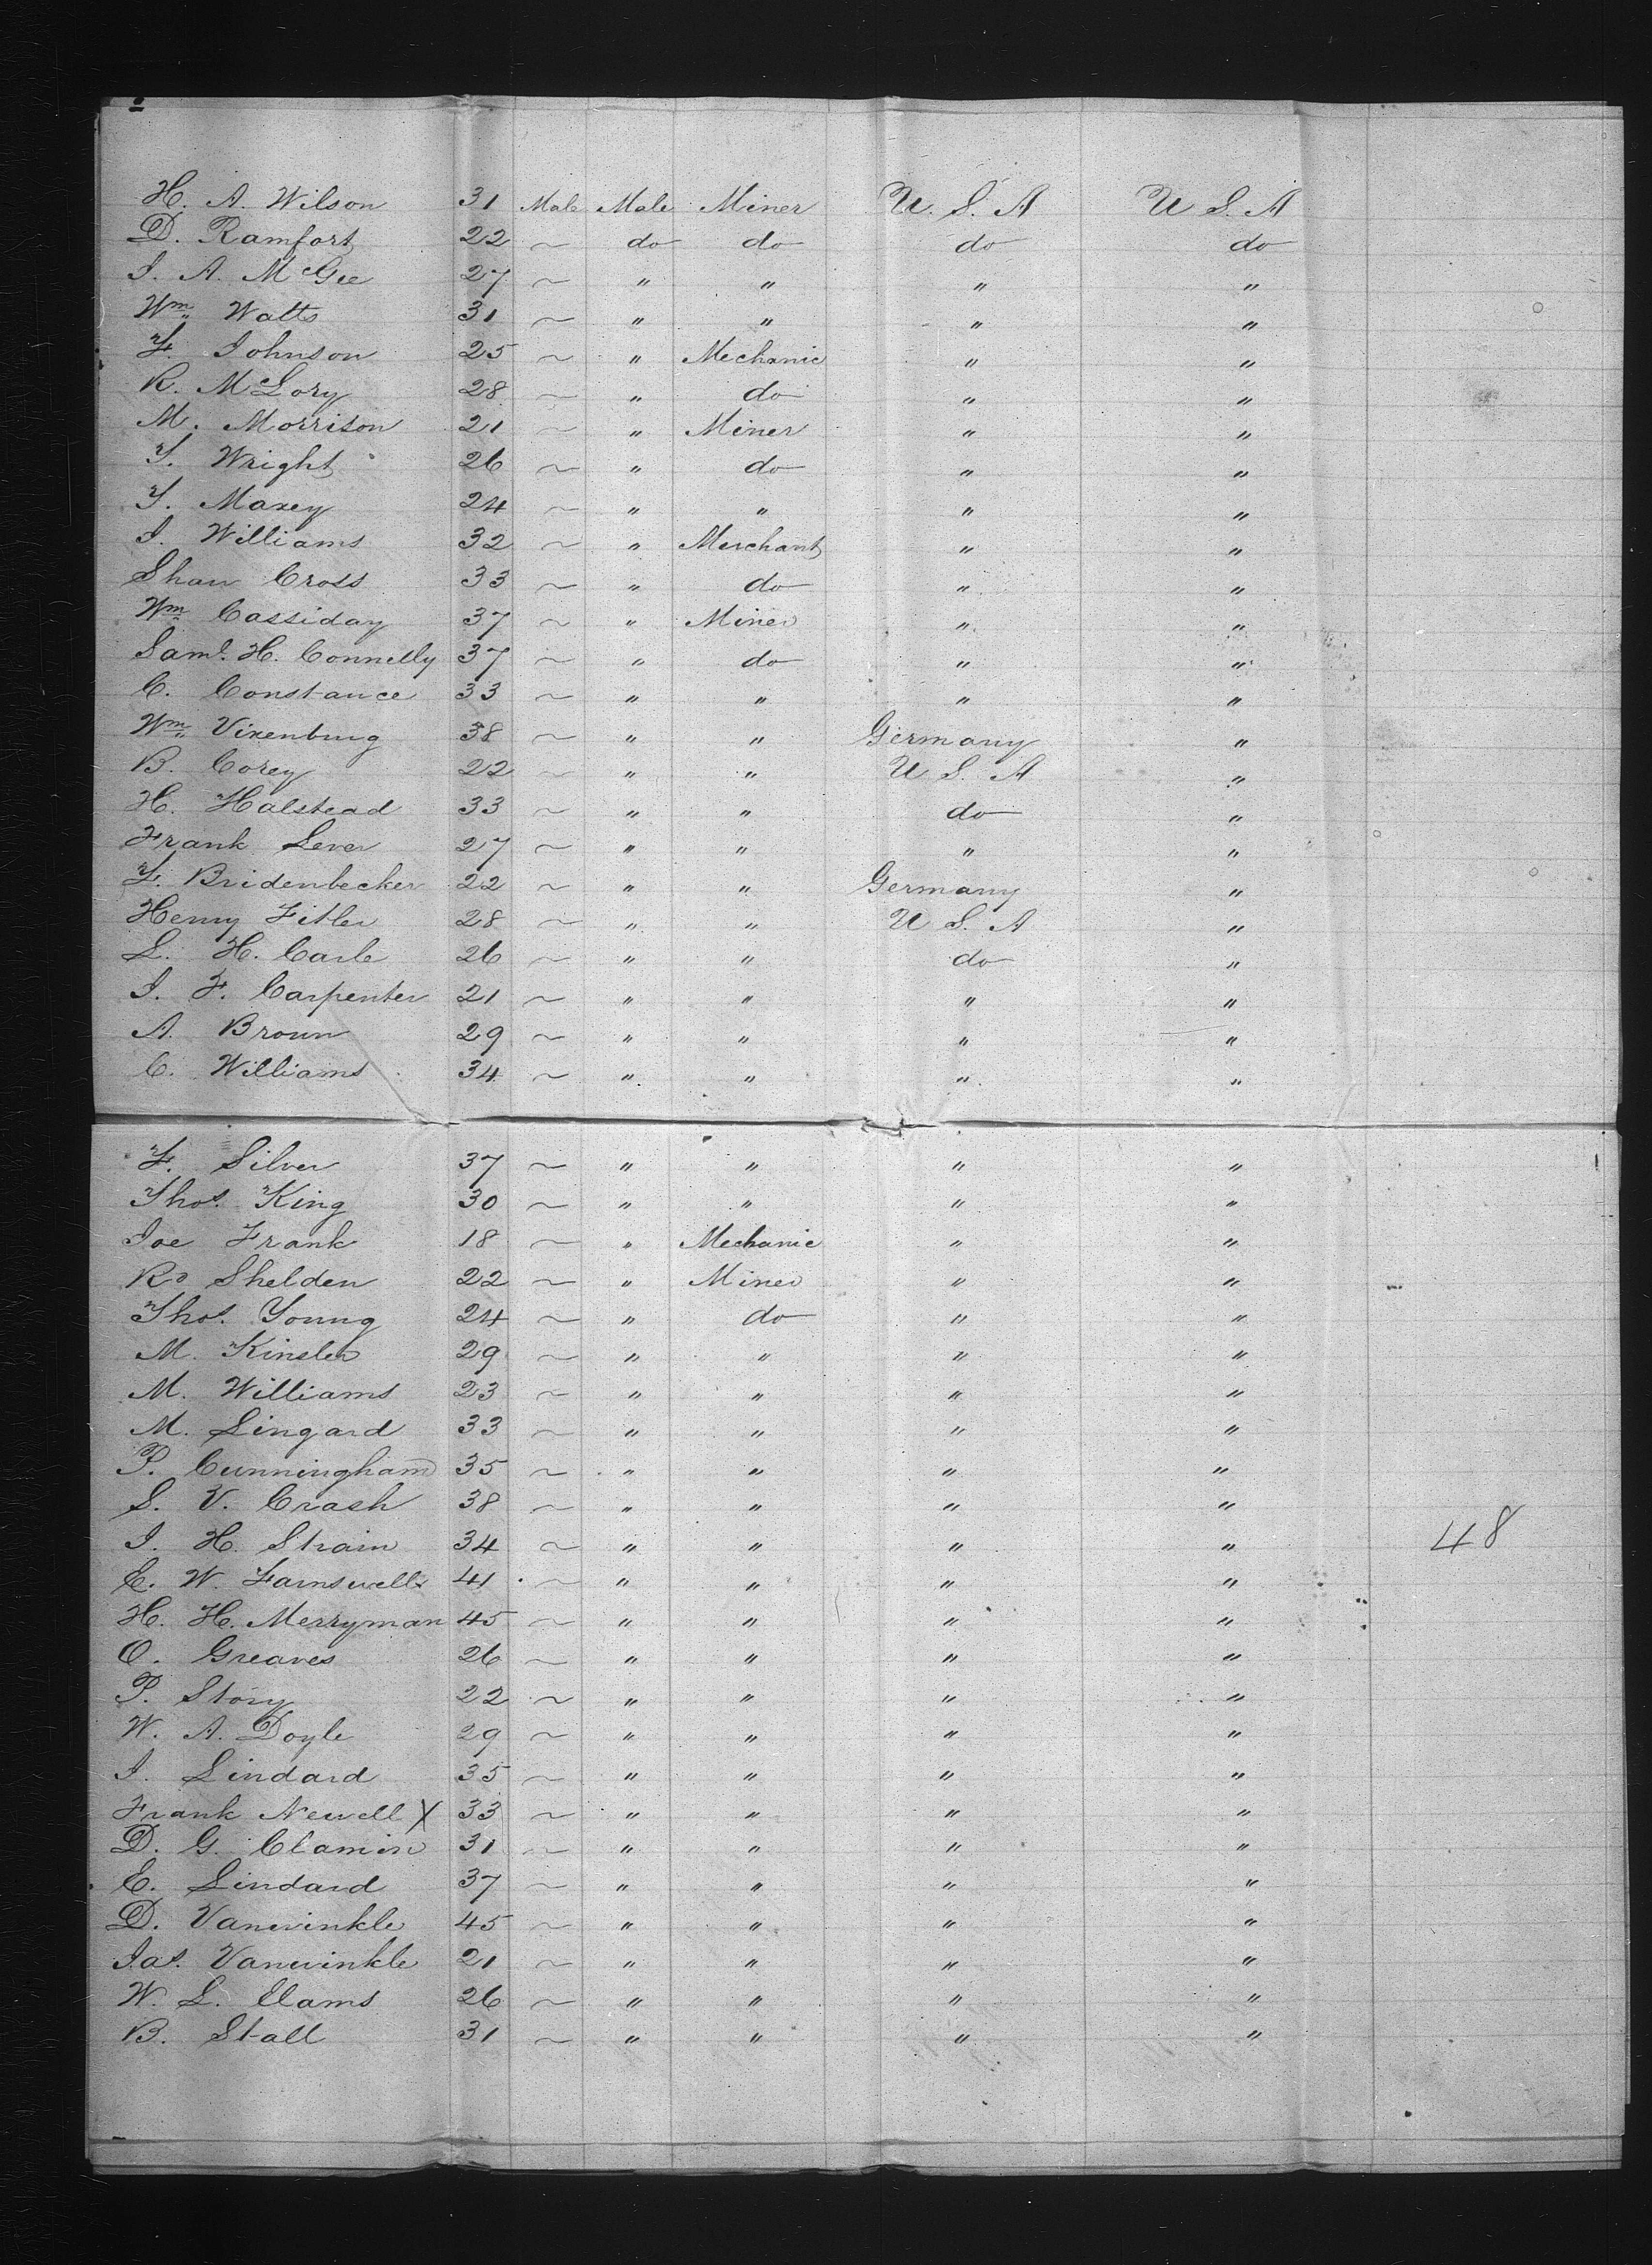 H. A. Wilson 31 Male Male Miner U. S. A U S. A
D. Ramfort 22 ~ do do do do
J. A. McGee 27 ~ " " " "
Wm. Watts 31 ~ " " " "
F. Johnson 25 ~ " Mechanic " "
R. McLory 28 ~ " do " "
M. Morrison 21 ~ " Miner " "
T. Wright 26 ~ " do " "
T. Maxey 24 ~ " " " "
J. Williams 32 ~ " Merchant " "
Shaw Cross 33 ~ " do " "
Wm. Cassiday 37 ~ " Miner " "
Saml. H. Connelly 37 ~ " do " "
C. Constance 33 ~ " " " "
Wm. Vixenburg 38 ~ " " Germany "
B. Corey 22 ~ " " U. S. A "
H. Halstead 33 ~ " " do "
Frank Lever 27 ~ " " " "
F. Bridenbecker 22 ~ " " Germany "
Henry Fitler 28 ~ " " U S. A "
L. H. Carle 26 ~ " " do "
J. F. Carpenter 21 ~ " " " "
A. Broun 29 ~ " " " "
C. Williams 34 ~ " " " "
F. Silver 37 ~ " " " "
Thos. King 30 ~ " " " "
Joe Frank 18 ~ " Mechanic " "
Ro Shelden 22 ~ " Miner " "
Thos. Young 24 ~ " do " "
M. Kinsler 29 ~ " " " "
M. Williams 23 ~ " " " "
M. Lingard 33 ~ " " " "
P. Cunningham 35 ~ " " " "
S. V. Crash 38 ~ " " " "
J. H. Strain 34 ~ " " " " 48
E. W. Farnswell 41 ~ " " " "
H. H. Merryman 45 ~ " " " "
O. Greaves 26 ~ " " " "
P. Story 22 ~ " " " "
W. A. Doyle 29 ~ " " " "
J. Lindard 35 ~ " " " "
Frank Newell X 33 ~ " " " "
D. G. Clamin 31 ~ " " " "
E. Lindard 37 ~ " " " "
D. Vanwinkle 45 ~ " " " "
Jas. Vanwinkle 21 ~ " " " "
W. L. Elams 26 ~ " " " "
B. Stall 31 ~ " " " "